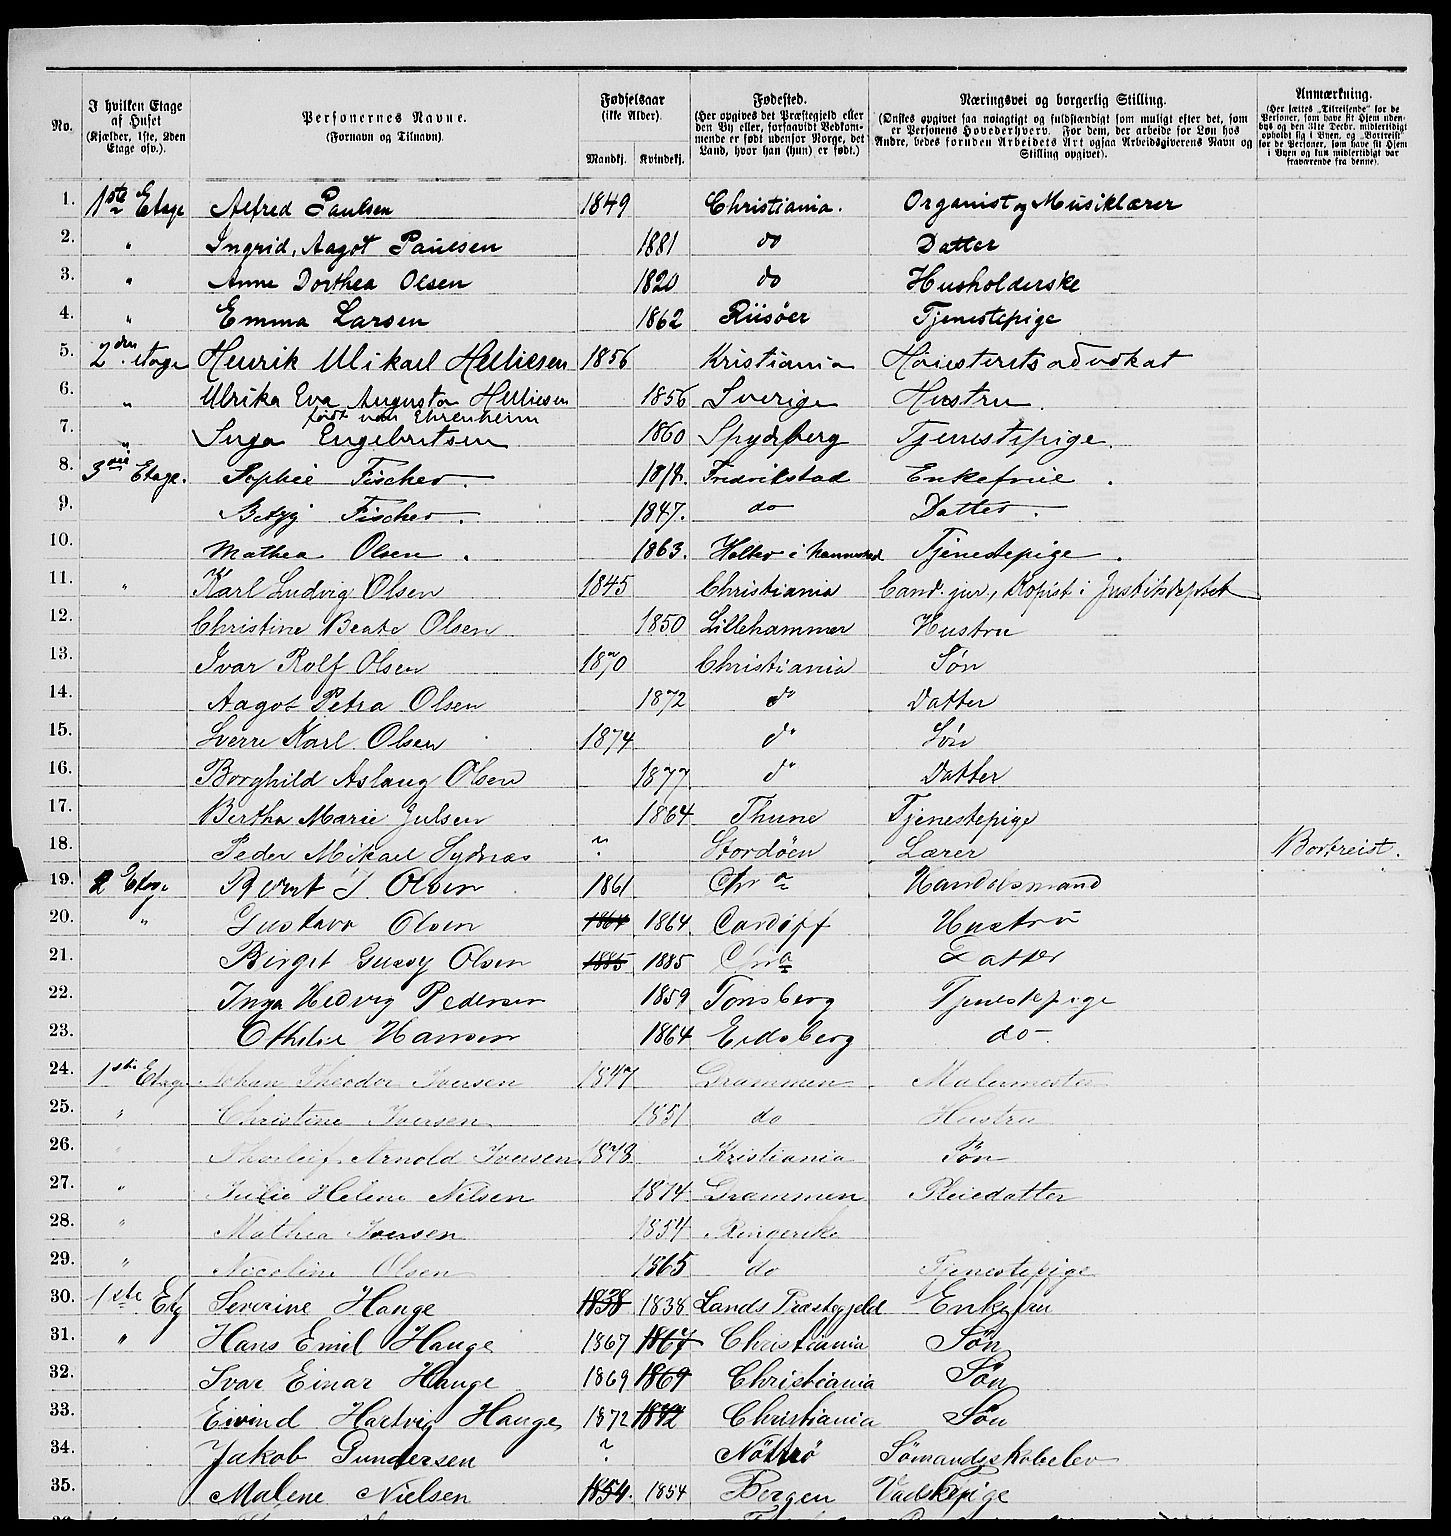 No. | I hvilken Etage af Huset (Kjælder, 1ste, 2den Etage osv.). | Personernes Navne. (Fornavn og Tilnavn). | Fødselsaar (ikke Alder). Mandkj. | Kvindekj. | Fødested. (Her opgives det Præstegjeld eller den By eller, forsaavidt Vedkommende er født udenfor Norge, det Land, hvor han (hun) er født.) | Næringsvei og borgerlig Stilling. (Ønskes opgivet saa nøiagtigt og fuldstændigt som muligt efter det, som er Personens Hovederhverv. For dem, der arbeide for Løn hos Andre, bedes foruden Arbeidets Art ogsaa Arbeidsgiverens Navn og Stilling opgivet). | Anmærkning. (Her sættes „Tilreisende" for de Personer, som have sit Hjem udenbys og den 31te Decbr. midlertidigt opholdt sig i Byen, og „Bortreist" for de Personer, som have sit Hjem i Byen og kun midlertidigt var fraværende fra denne).
1. 1ste Etage Alfred Paulsen 1849 Christiania. Organist og Musiklærer
2. " Ingrid, Aagot Paulsen 1881 do Datter
3. " Anne Dorthea Olsen 1820 do Husholderske
4. " Emma Larsen 1862 Riisöer Tjenestepige
5. 2den etage Henrik Mikael Helliesen 1856 Kristiania Høiesteretsadvokat
6. " Ulrika Eva Augusta Helliesen 1856 Sverige Hustru
født von Ehrenheim
7. " Inga Engebretsen 1860 Spydeberg Tjenestepige.
8. 3die Etage. Sophie Fischer. 1818. Fredrikstad Enkefrue.
9. Betzy Fischer. 1847. do Datter.
10. Mathea Olsen. 1863. i Tjenestepige.
11. " Karl Ludvig Olsen 1845 Christiania Cand. jur, Kopist i Justitsdeptet
12. Christine Beate Olsen 1850 Lillehammer Hustru
13. Ivar Rolf Olsen 1870 Christiania Søn
14. Aagot Petra Olsen 1872 do Datter
15. Sverre Karl Olsen 1874 do Søn
16. Borghild Aslaug Olsen 1877 do Datter
17. Bertha Marie Julsen 1864 Thune Tjenestepige
18. Peder Mikael Sydnæs ? Stordøen Lærer Bortreist.
19. 2 Etage Bernt J. Olsen 1861 Chra Handelsmand
20. " Gustava Olsen 1864 1864 Cardiff Hustru
21. Birget Gussy Olsen 1885 1885 Chra Datter
22. Inga Hedvig Pedersen 1859 Tønsberg Tjenestepige
23. Othelie Hansen 1864 Eidsberg do
24. 1ste Etage Johan Theodor Iversen 1847 Drammen Malermester
25. " Christine Iversen 1851 do Hustru
26. " Thorleif Arnold Iversen 1878 Kristiania Søn
27. " Julie Helene Nilsen 1874 Drammen Pleiedatter
28. " Mathea Iversen 1854 Ringerike
29. " Nicoline Olsen 1865 do Tjenestepige
30. 1ste Etg Severine Hauge 1838 1838 Lands Præstegjeld Enkefru
31. " Hans Emil Hauge 1867 1867 Christiania Søn
32. Ivar Einar Hauge 1869 1869 Christiania Søn
33. Eivind Hartvig Hauge 1872 1872 Christiania Søn
34. Jakob Gundersen ? Nøtterø Sømandsskoleelev
35. Malene Nielsen 1854. 1854 Bergen Vadskepige